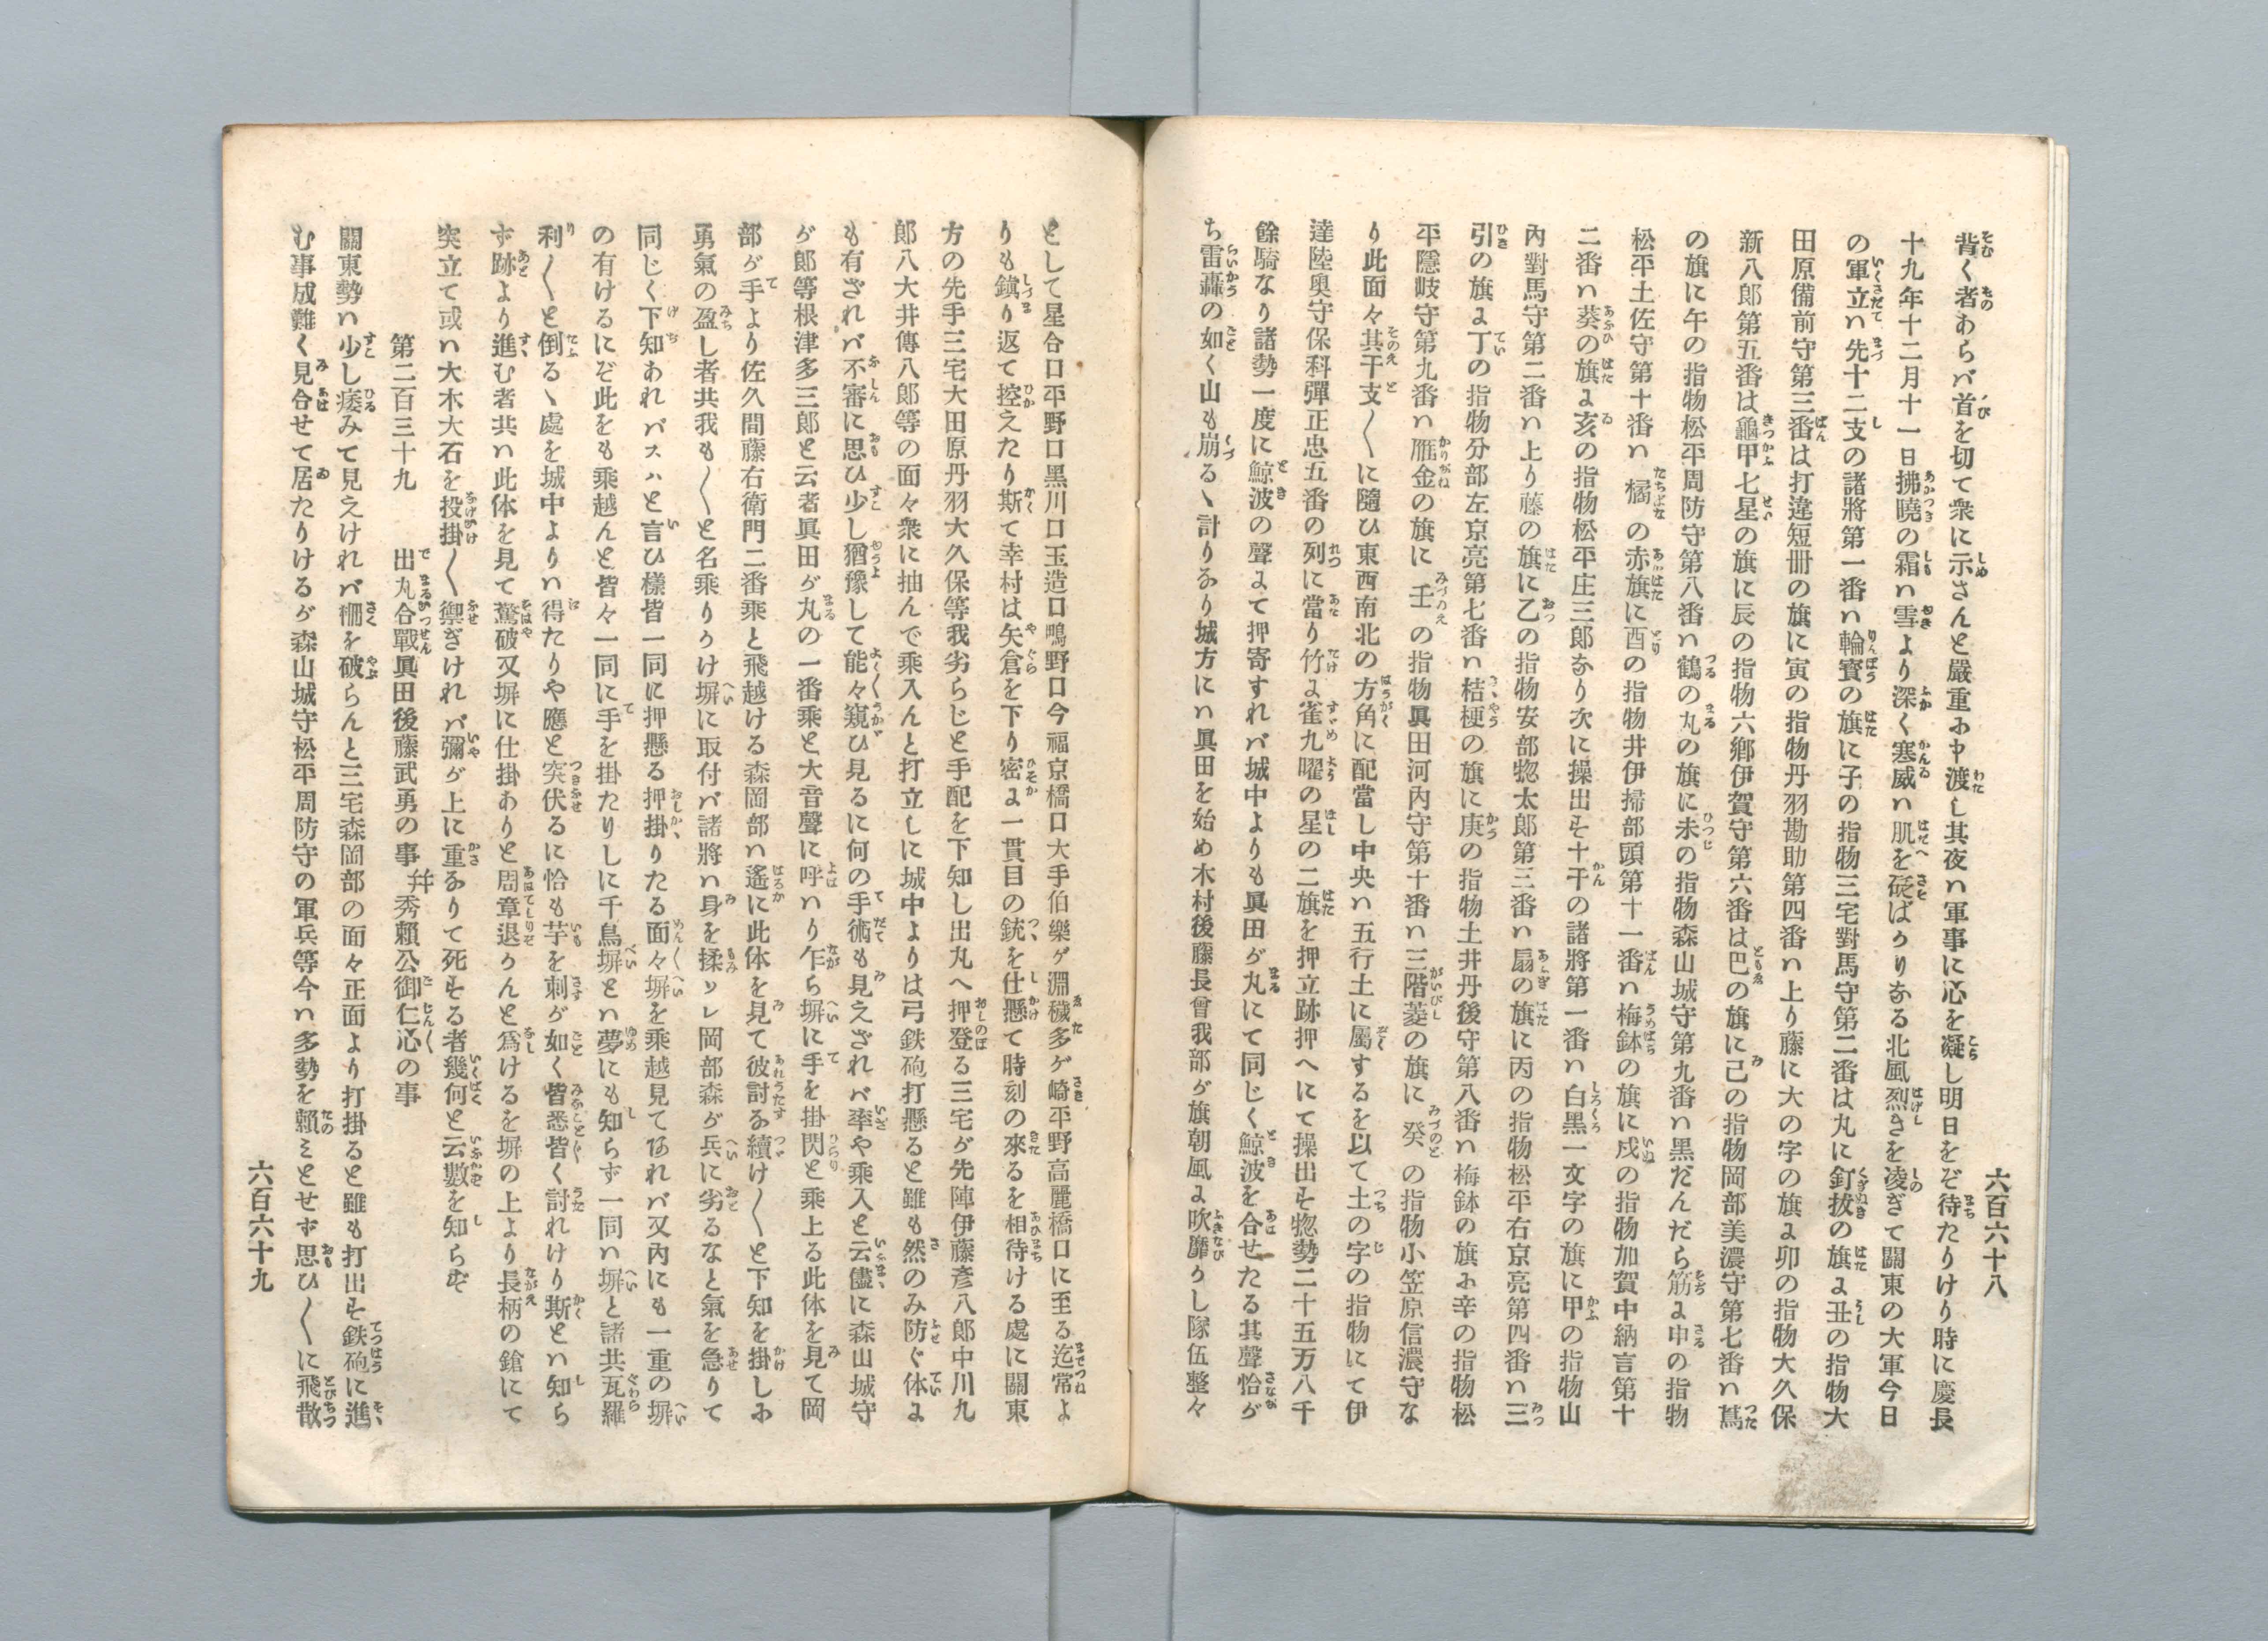 六百六十八
背く者あらバ首を切て衆に示さんと嚴重に申渡し其夜ハ軍事に心を凝し明日をぞ待たりけり時に慶長
十九年十二月十一日拂曉の霜ハ雪より深く寒威ハ肌を砭ばかりなる北風烈きを凌ぎて關東の大軍今日
の軍立ハ先十二支の諸將第一番ハ輪寳の旗に子の指物三宅對馬守第二番は丸に釘抜の旗に丑の指物大
田原備前守第三番は打違短冊の旗に寅の指物丹羽勘助第四番ハ上り藤に大の字の旗に卯の指物大久保
新八郎第五番は龜甲七星の旗に辰の指物六鄕伊賀守第六番は巴の旗に己の指物岡部美濃守第七番ハ蔦
の旗に午の指物松平周防守第八番ハ鶴の丸の旗に未の指物森山城守第九番ハ黒だんだら筋に申の指物
松平土佐守第十番ハ橘の赤旗に酉の指物井伊掃部頭第十一番ハ梅鉢の旗に戍の指物加賀中納言第十
二番ハ葵の旗に亥の指物松平庄三郎なり次に操出す十干の諸將第一番ハ白黒一文字の旗に甲の指物山
內對馬守第二番ハ上り藤の旗に乙の指物安部惣太郎第三番ハ扇の旗に丙の指物松平右京亮第四番ハ三
引の旗に丁の指物分部左京亮第七番ハ桔梗の旗に庚の指物土井丹後守第八番ハ梅鉢の旗に辛の指物松
平隱岐守第九番ハ雁金の旗に壬の指物眞田河內守第十番ハ三階菱の旗に癸の指物小笠原信濃守な
り此面々其干支〱に隨ひ東西南北の方角に配當し中央ハ五行土に屬するを以て土の字の指物にて伊
達陸奥守保科彈正忠五番の列に當り竹に雀九曜の星の二旗を押立跡押へにて操出す惣勢二十五万八千
餘騎なり諸勢一度に鯨波の聲にて押寄すれバ城中よりも眞田が丸にて同じく鯨波を合せたる其聲恰が
ち雷轟の如く山も崩るヽ計りなり城方にハ眞田を始め木村後藤長曾我部が旗朝風に吹靡かし隊伍整々
として星合口平野口黒川口玉造口鴫野口今福京橋口大手伯樂ゲ淵穢多ゲ崎平野高麗橋口に至る迄常よ
りも鎭り返て控えたり斯て幸村は矢倉を下り密に一貫目の銃を仕懸て時刻の來るを相待ける處に關東
方の先手三宅大田原丹羽大久保等我劣らじと手配を下知し出丸へ押登る三宅が先陣伊藤彥八郎中川九
郎八大井傳八郎等の面々衆に抽んで乘入んと打立しに城中よりは弓鉄砲打懸ると雖も然のみ防ぐ体に
も有ざれバ不審に思ひ少し猶豫して能々窺ひ見るに何の手術も見えざれバ率や乘入と云儘に森山城守
が郞等根津多三郎と云者眞田が丸の一番乘と大音聲に呼ハり乍ら塀に手を掛閃と乘上る此体を見て岡
部が手より佐久間藤右衛門二番乘と飛越ける森岡部ハ遙に此体を見て彼討な續け〱と下知を掛しに
勇氣の盈し者共我も〱と名乘りかけ塀に取付バ諸將ハ身を揉ンレ岡部森が兵に劣るなと氣を急りて
同じく下知あれバスハと言ひ樣皆一同に押懸る押掛りたる面々塀を乘越見てあれバ又內にも一重の塀
の有けるにぞ此をも乘越んと皆々一同に手を掛たりしに千鳥塀とハ夢にも知らず一同ハ塀と諸共瓦羅
利〱と倒るヽ處を城中よりハ得たりや應と突伏るに恰も芋を刺が如く皆悉皆く討れけり斯とハ知ら
ず跡より進む者共ハ此体を見て驚破又塀に仕掛ありと周章退かんと爲けるを塀の上より長柄の鎗にて
突立て或ハ大木大石を投掛〱禦ぎけれバ彌が上に重なりて死する者幾何と云數を知らず
第二百三十九　出丸合戰眞田後藤武勇の事幷秀賴公御仁心の事
關東勢ハ少し痿みて見えけれバ柵を破らんと三宅森岡部の面々正面より打掛ると雖も打出す鉄砲に進
む事成難く見合せて居たりけるが森山城守松平周防守の軍兵等今ハ多勢を賴ミとせず思ひ〱に飛散
六百六十九